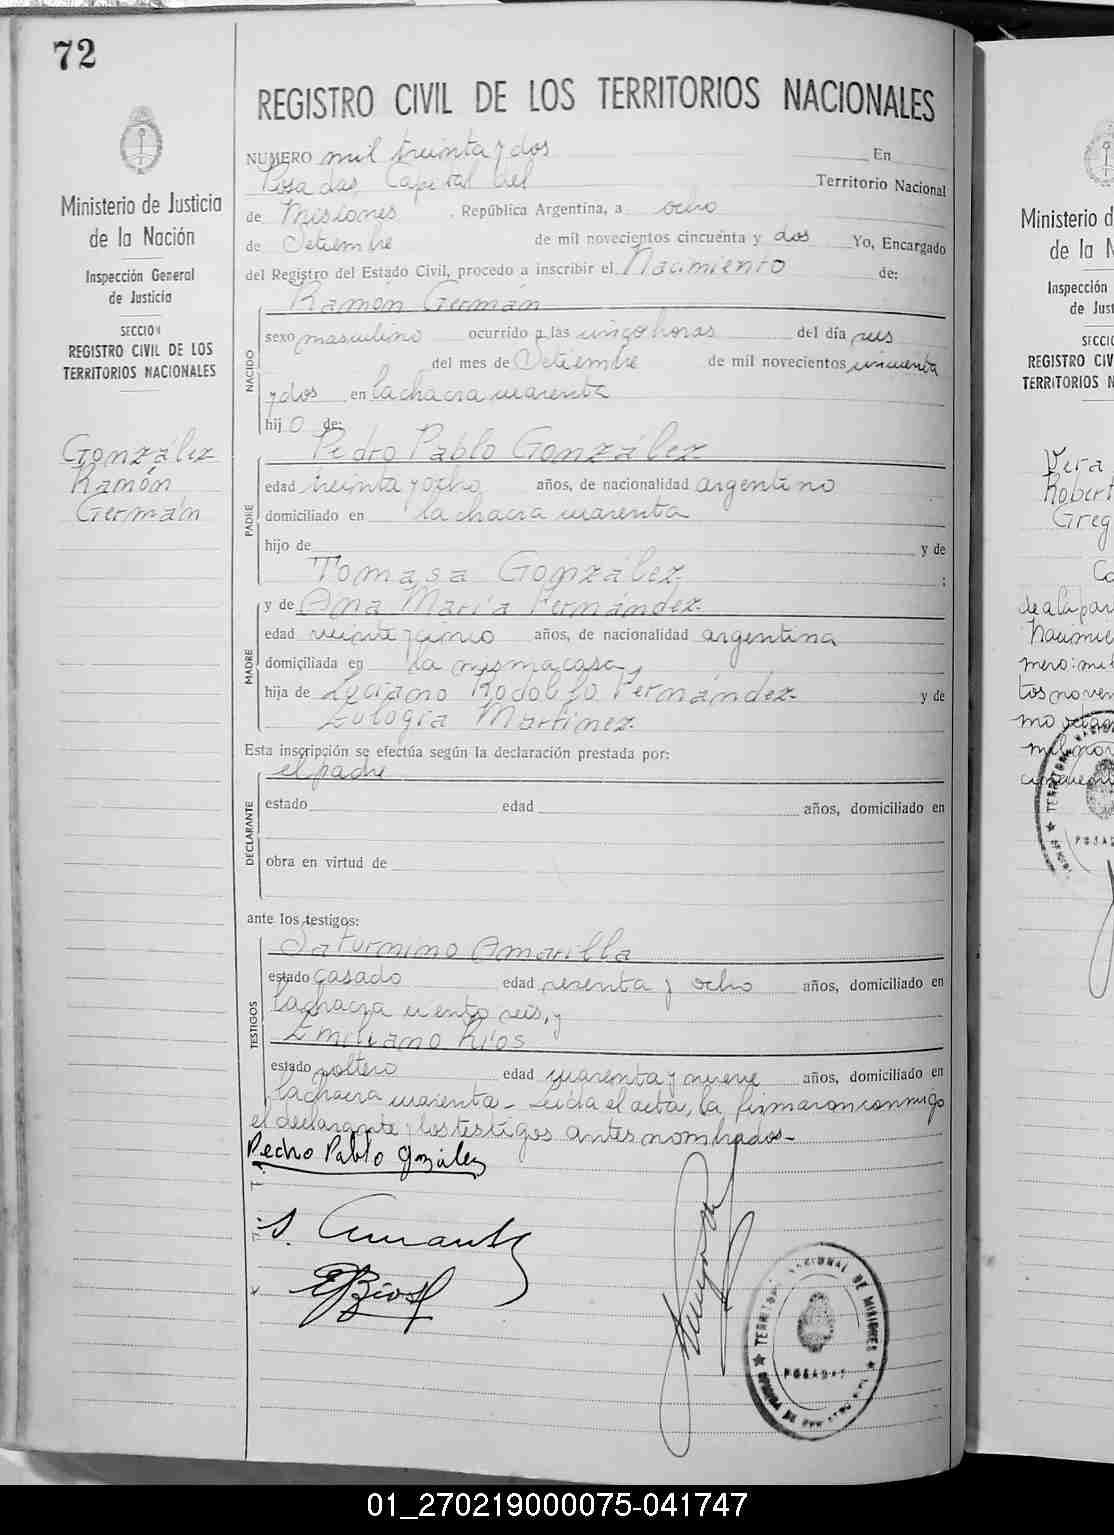 72
REGISTRO CIVIL DE LOS TERRITORIOS NACIONALES
Ministerio de Justicia
de la Nación
Inspección General
de Justicia
SECCION
REGISTRO CIVIL DE LOS
TERRITORIOS NACIONALES
González
Ramón
Germán
NUMERO mil treinta y dos En
Posadas, Capital del Territorio Nacional
de Misiones, República Argentina, a ocho
de Setiembre de mil novecientos cincuenta y dos Yo, Encargado
del Registro del Estado Civil, procedo a inscribir el Nacimiento de:
NACIDO
Ramón Germán
sexo masculino ocurrido a las cinco horas del día seis
del mes de Setiembre de mil novecientos cincuenta
y dos en la chacra cuarenta
hijo de:
PADRE
Pedro Pablo González
edad treinta y ocho años, de nacionalidad argentino
domiciliado en la chacra cuarenta
hijo de y de
Tomasa González;
MADRE
y de Ana María Fernández.
edad veinte y cinco años, de nacionalidad argentina
domiciliada en la misma casa,
hija de Rodolfo Fernández. y de
Eulogia Martínez.
Esta inscripción se efectúa según la declaración prestada por:
DECLARANTE
el padre
estado edad años, domiciliado en
obra en virtud de
ante los testigos:
TESTIGOS
Saturnino Amarilla
estado casado edad sesenta y ocho años, domiciliado en
la chacra ciento seis, y
Emiliano Ríos
estado soltero edad cuarenta y nueve años, domiciliado en
la chacra cuarenta - Leída el acta, la firmaron conmigo
el declarante y los testigos antes nombrados-
Pedro Pablo González
TERRITORIO NACIONAL DE MISIONES
POSADAS
Ministerio d
de la N
Inspección
de Just
SECCIO
REGISTRO CIV
TERRITORIOS N
Vera
Robert
Greg
01_270219000075-041747